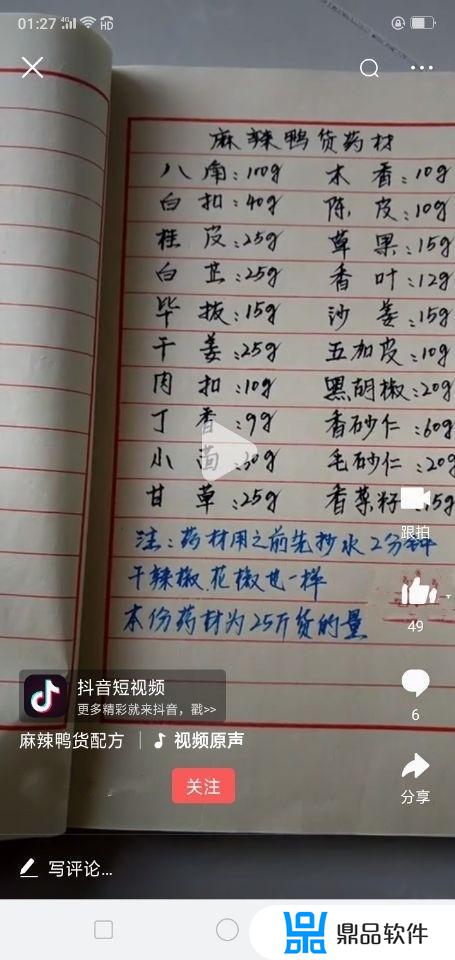 01:27
麻辣鸭货药材
八角:100g 木香:10g
白扣:40g 陈皮:10g
桂皮:25g 草果:15g
白芷:25g 香叶:12g
毕拔:15g 沙姜:15g
干姜:25g 五加皮:10g
肉扣:10g 黑胡椒:20g
丁香:9g 香砂仁:60g
小茴:30g 毛砂仁:20g
甘草:25g 香菜籽:15g
注:药材用之前先抄水2分钟
干辣椒.花椒也一样
本份药材为25斤货的量
跟拍
49
6
分享
抖音短视频
更多精彩就来抖音，戳>>
麻辣鸭货配方 | 视频原声
关注
写评论...
鼎品软件